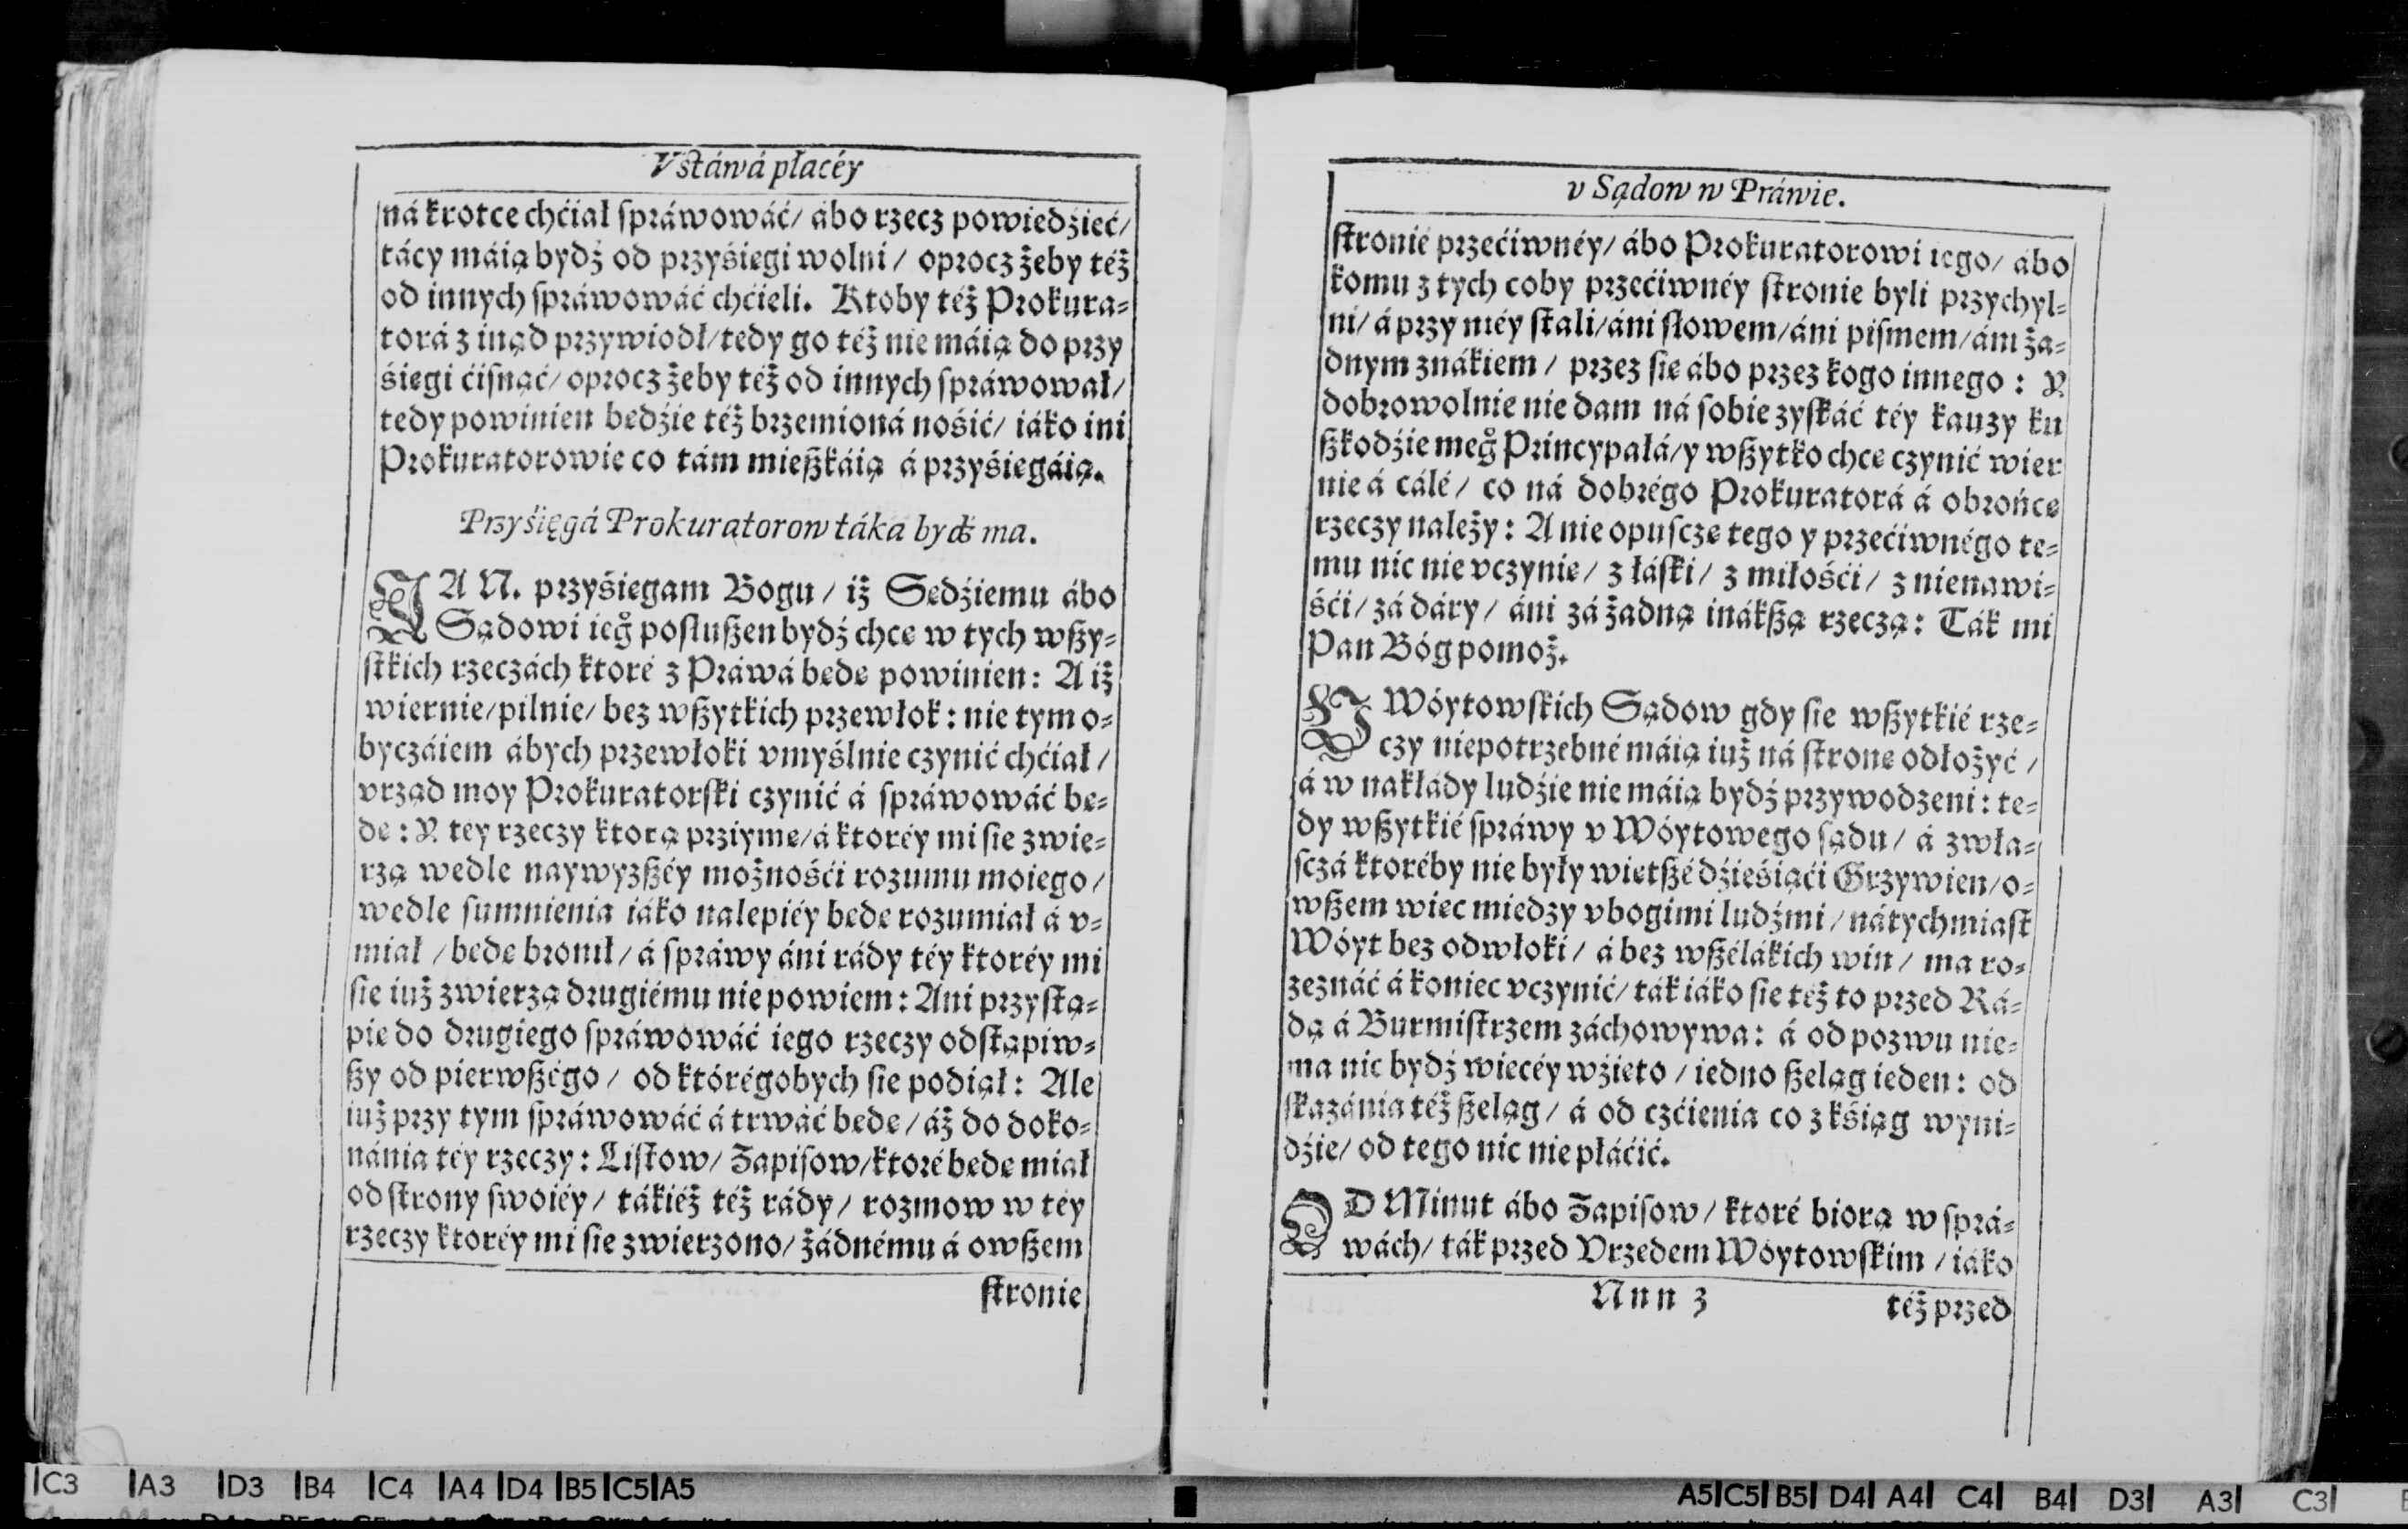 Vstáwá płacéy
ná krotce chćiał ſpráwowáć/ ábo rzecz powiedźieć/
tácy máią bydź od przyśięgi wolni / oprocz żeby téż
od innych ſpráwowáć chćieli. Ktoby téż Prokura-
torá z inąd przywiodł/ tedy go téż nie máią do przy
śięgi ćiſnąć/ oprocz żeby téż od innych ſpráwował/
tedy powinien będźie téż brzemioná nośić/ iáko ini
Prokuratorowie co tám mieſzkáią á przyśięgáią.
Przyśięgá Prokuratorow táka bydź ma.
IA N. przyśięgam Bogu / iż Sędźiemu ábo
Sądowi ieg̊ poſłuſzen bydź chcę w tych wſzy-
ſtkich rzeczách ktoré z Práwá będę powinien: A iż
wiernie/ pilnie/ bez wſzytkich przewłok: nie tym o-
byczáiem ábych przewłoki vmyślnie czynić chćiał /
vrząd moy Prokuratorſki czynić á ſpráwowáć bę-
dę: Y téy rzeczy ktorą prziymę/ á ktoréy mi ſie zwie-
rzą wedle naywyzſzéy możnośći rozumu moiego /
wedle ſumnienia iáko nalepiéy będę rozumiał á v-
miał / będę bronił / á ſpráwy áni rády téy ktoréy mi
ſie iuż zwierzą drugiému nie powiem: Ani przyſtą-
pię do drugiego ſpráwowáć iego rzeczy odſtąpiw-
ſzy od pierwſzégo / od którégobych ſie podiął: Ale
iuż przy tym ſpráwowáć á trwáć będę / áż do doko-
nánia téy rzeczy: Liſtow/ Zapiſow/ ktoré będę miał
od ſtrony ſwoiéy / tákiéż téż rády / rozmow w téy
rzeczy ktoréy mi ſie zwierzono/ żádnému á owſzem
ſtronie
v Sądow w Práwie.
ſtronié przećiwnéy/ ábo Prokuratorowi iego/ ábo
komu z tych coby przećiwnéy ſtronie byli przychyl-
ni/ á przy niéy ſtali/ áni ſłowem/ áni piſmem/ áni ża-
dnym znákiem / przez ſię ábo przez kogo innego: Y
dobrowolnie nie dam ná ſobie zyſkáć téy kauzy ku
ſzkodźie meg̊ Principałá/ y wſzytko chcę czynić wier
nie á cálé / co ná dobrégo Prokuratorá á obrońcę
rzeczy należy: A nie opuſczę tego y przećiwnégo te-
mu nic nie vczynię/ z łáſki/ z miłośći/ z nienawi-
śći/ zá dáry/ áni zá żadną inákſzą rzeczą: Ták mi
Pan Bóg pomoż.
V Wóytowſkich Sądow gdy ſie wſzytkié rze-
czy niepotrzebné máią iuż ná ſtronę odłożyć /
á w nakłády ludźie nie máią bydź przywodzeni: te-
dy wſzytkié ſpráwy v Wóytowego ſądu / á zwła-
ſczá ktoréby nie były więtſzé dźieśiąći Grzywien/ o-
wſzem więc miedzy vbogimi ludźmi / nátychmiaſt
Wóyt bez odwłoki / á bez wſzélákich win / ma ro-
zeznáć á koniec vczynić/ ták iáko ſie téż to przed Rá-
dą á Burmiſtrzem záchowywa: á od pozwu nie-
ma nic bydź więcéy wźięto / iedno ſzeląg ieden: od
ſkazánia téż ſzeląg / á od czćienia co z kśiąg wyni-
dźie/ od tego nic nie płáćić.
OD Minut ábo Zapiſow / ktoré biorą w ſprá-
wách/ ták przed Vrzędem Wóytowſkim / iáko
Nnn 3 téż przed
C3 A3 D3 B4 C4 A4 D4 B5 C5 A5
A5 C5 B5 D4 A4 C4 B4 D3 A3 C3